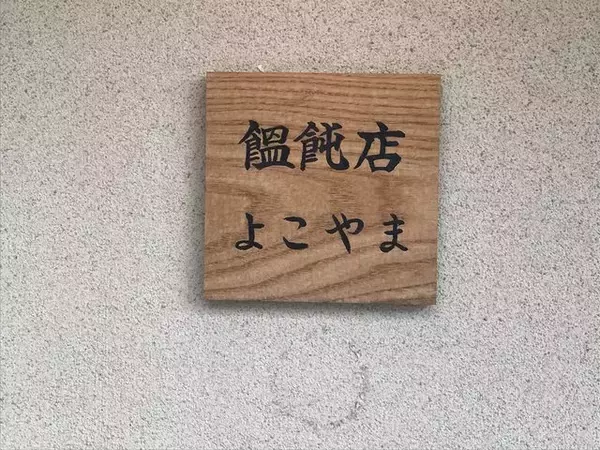 饂飩店
よこやま